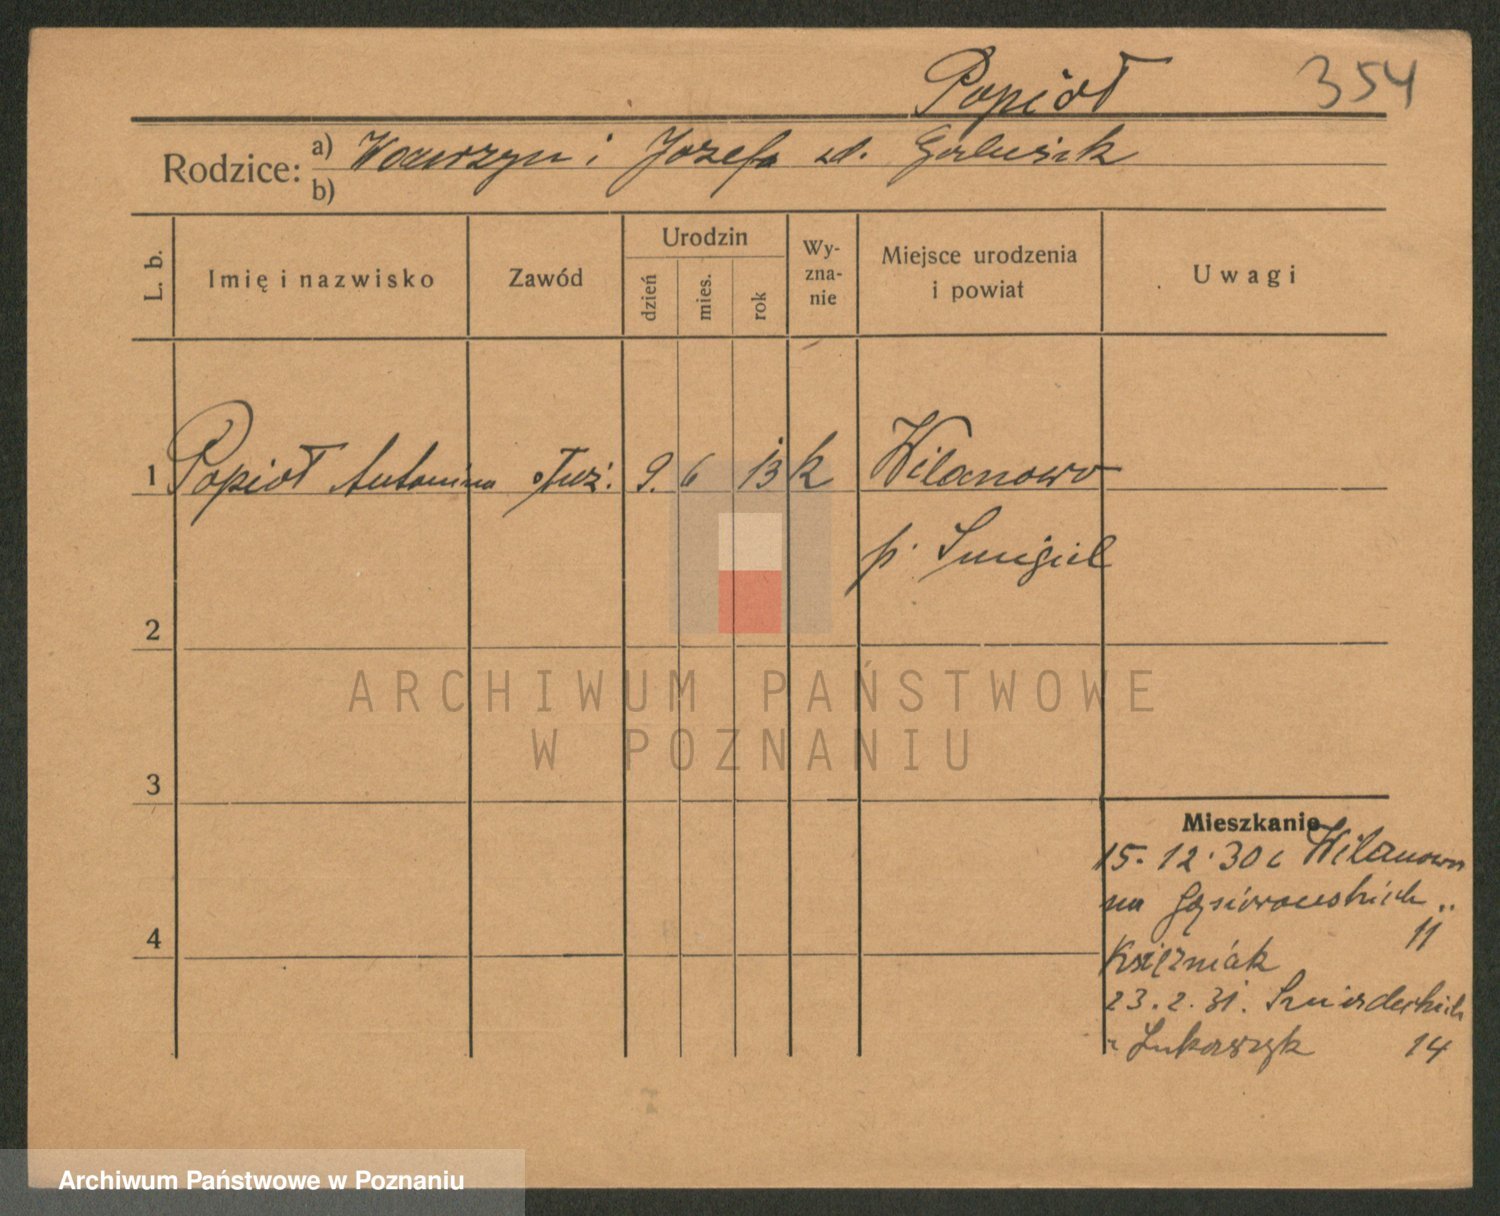 Popiół 354
Rodzice: a) Wawrzyn i Józefa zd.
b)
L. b.
Imię i nazwisko
Zawód
Urodzin
dzień
mies.
rok
Wy-
zna-
nie
Miejsce urodzenia
i powiat
Uwagi
1 Popiół Antonina służ. 9. 6 13 k Wilanowo
p. Śmigiel
2
3
4
Mieszkanie
15. 12. 30 z Wilanowa
na Gąsiorowskich
11
Księżniak
23. 2. 31. Śniadeckich
Łukaszyk 14
ARCHIWUM PAŃSTWOWE
W POZNANIU
Archiwum Państwowe w Poznaniu